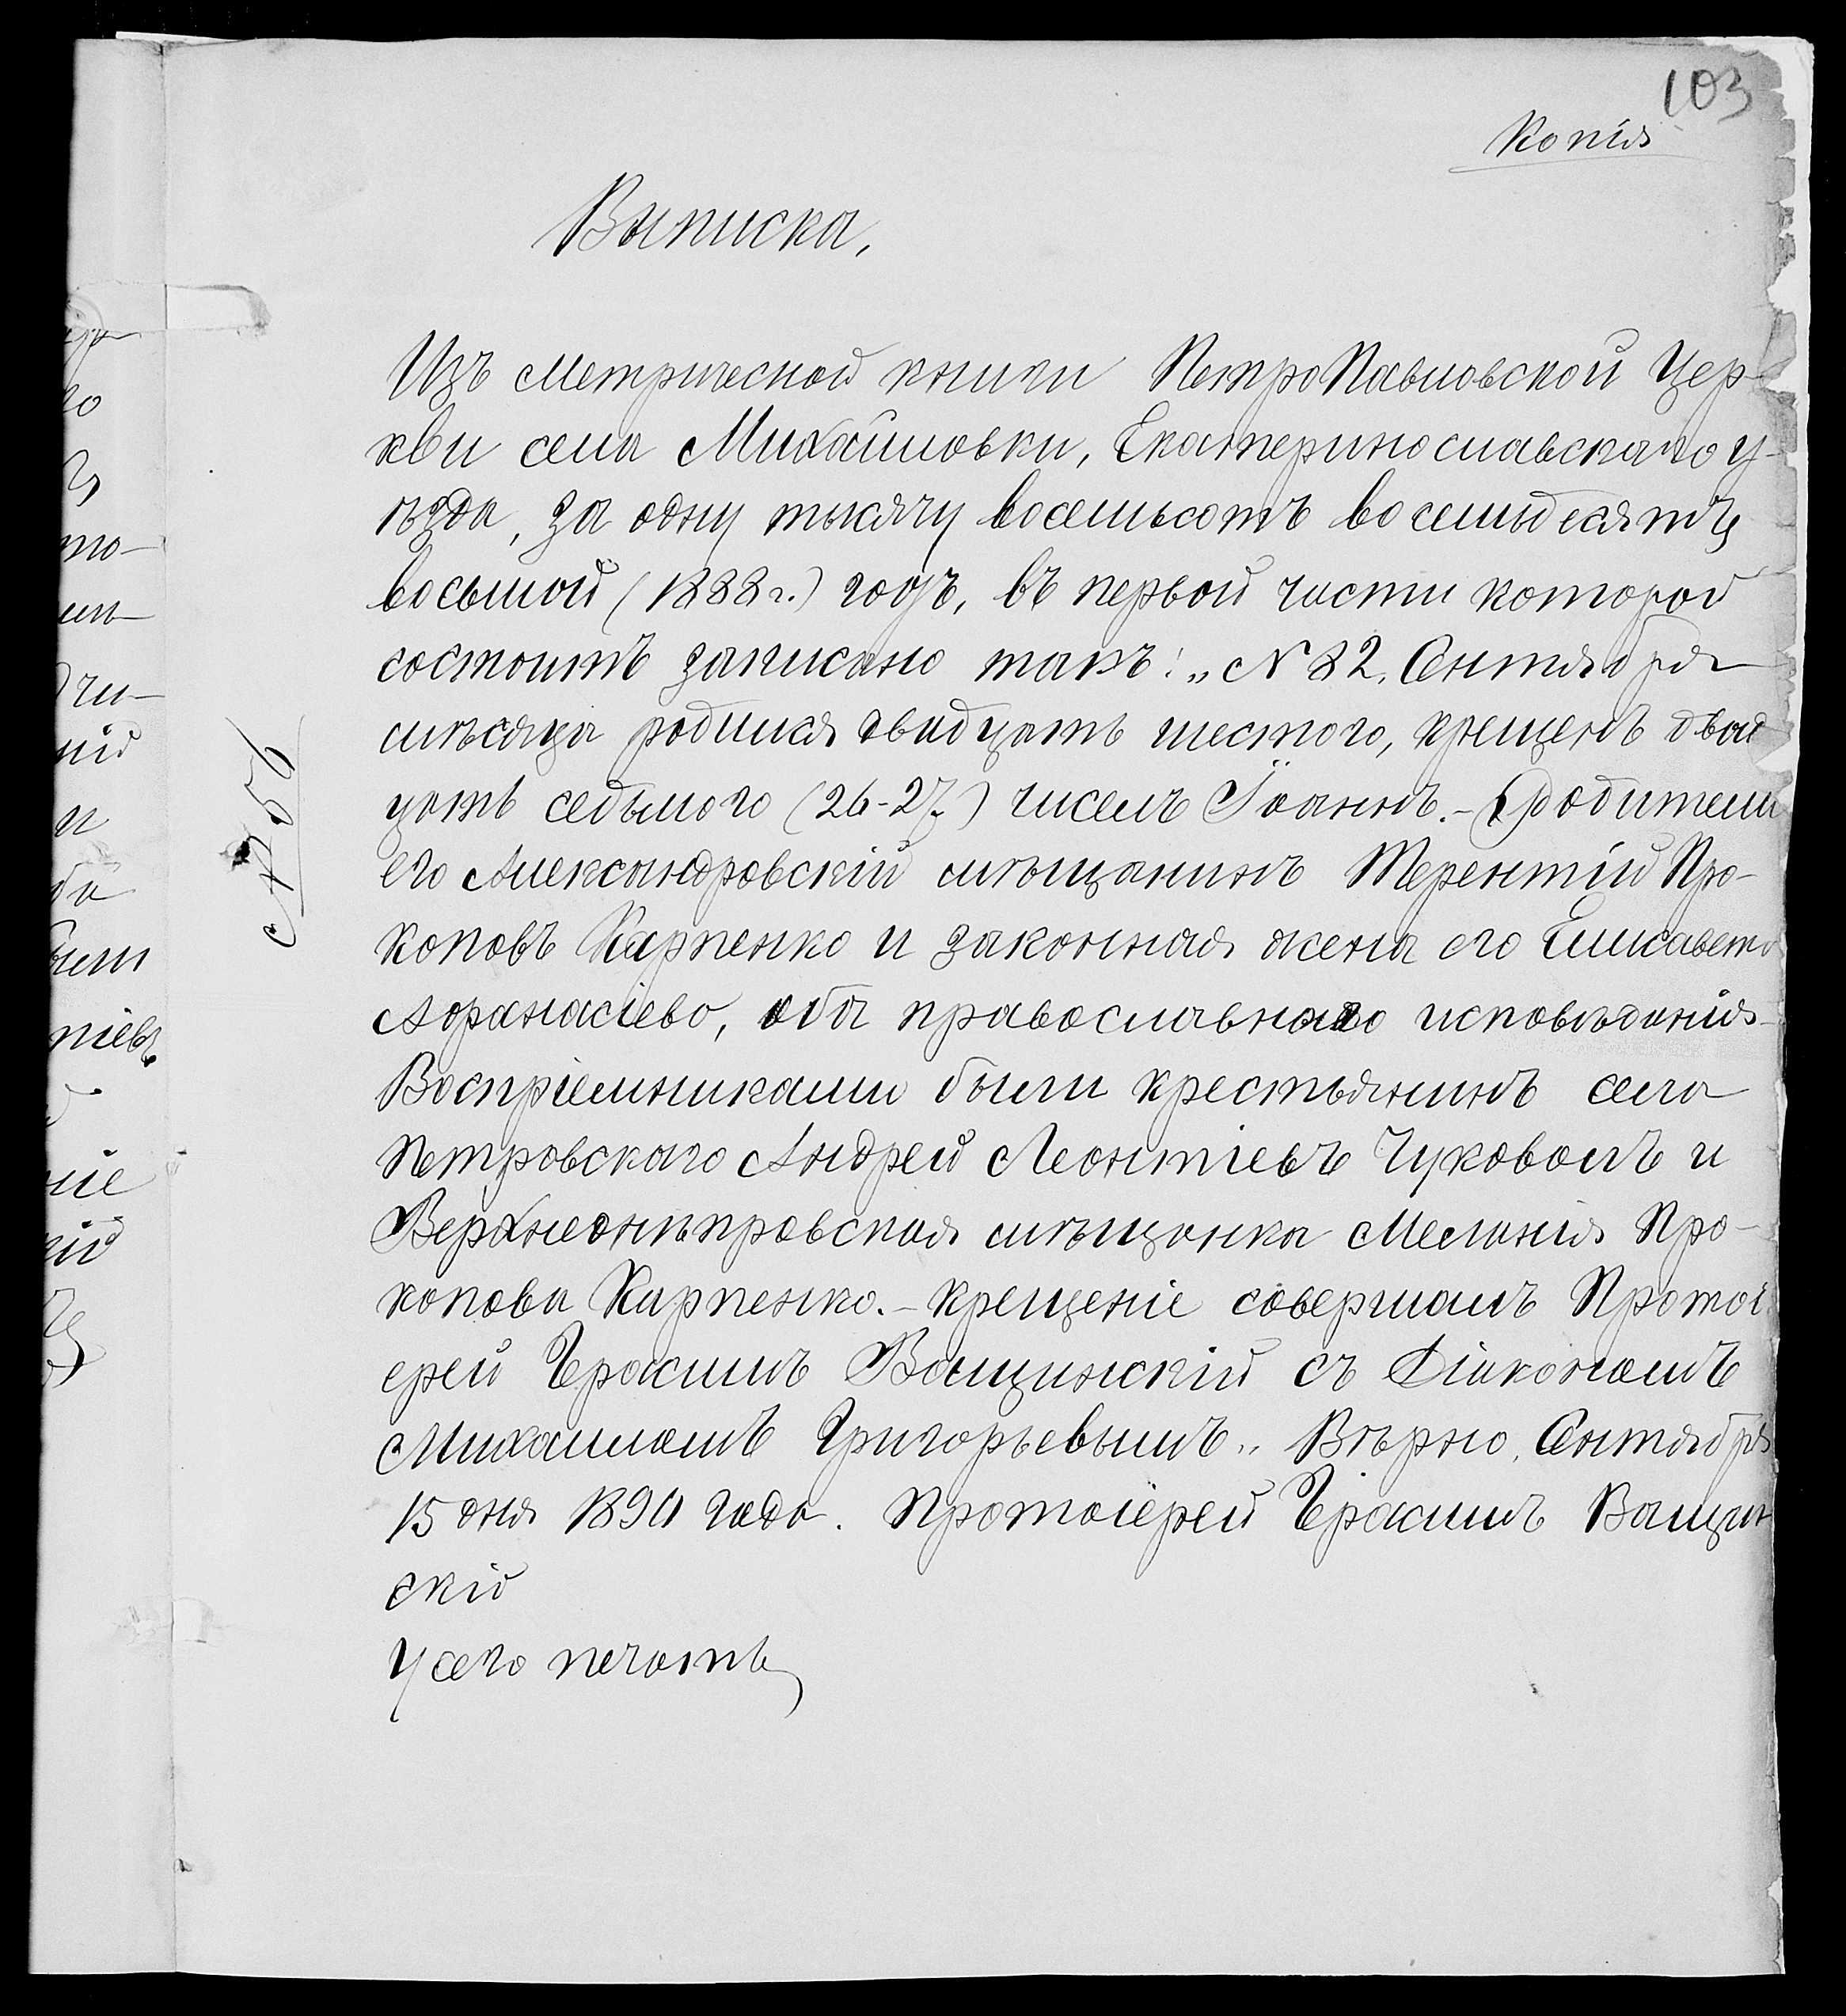 103
Копія
Выписка,
Изъ Метрической книги ПетроПавловской Цер-
кви села Михайловки, Екатеринославскаго у-
ѣзда, за одну тысячу восемьсотъ восемьдесятъ
восьмой (1888 г.) годъ, въ первой части которой
состоитъ записано такъ: „N 82. Сентября
мѣсяца родился двадцать шестого, крещенъ двад
цать седьмого (26-27) чиселъ Іоаннъ.- Родители
его Александровскій мѣщанинъ Терентій Про-
коповъ Карпенко и законная жена его Елисавета
Афанасіева, оба православнаго исповѣданія
Воспріемниками были крестьянинъ села
Петровскаго Андрей Леонтіевъ Чуковъ и
Верхнеднѣпровская мѣщанка Меланія Про-
копова Карпенко.- Крещеніе совершалъ Протоі
ерей Герасимъ Ващинскій съ Діакономъ
Михаиломъ Григорьевымъ„ Вѣрно, Сентября
15 дня 1890 года. Протоіерей Герасимъ Ващин
скій
У сего печать
N 56